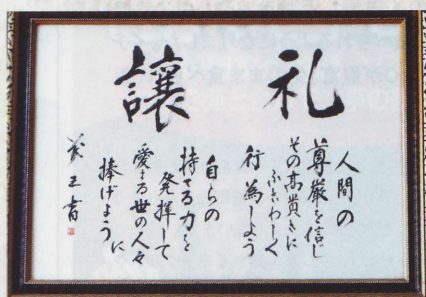 礼
人間の
尊厳を信じ
その高貴さに
ふさわしく
行為しよう
譲
自らの
持てる力を
発揮して
愛する世の人々に
捧げよう